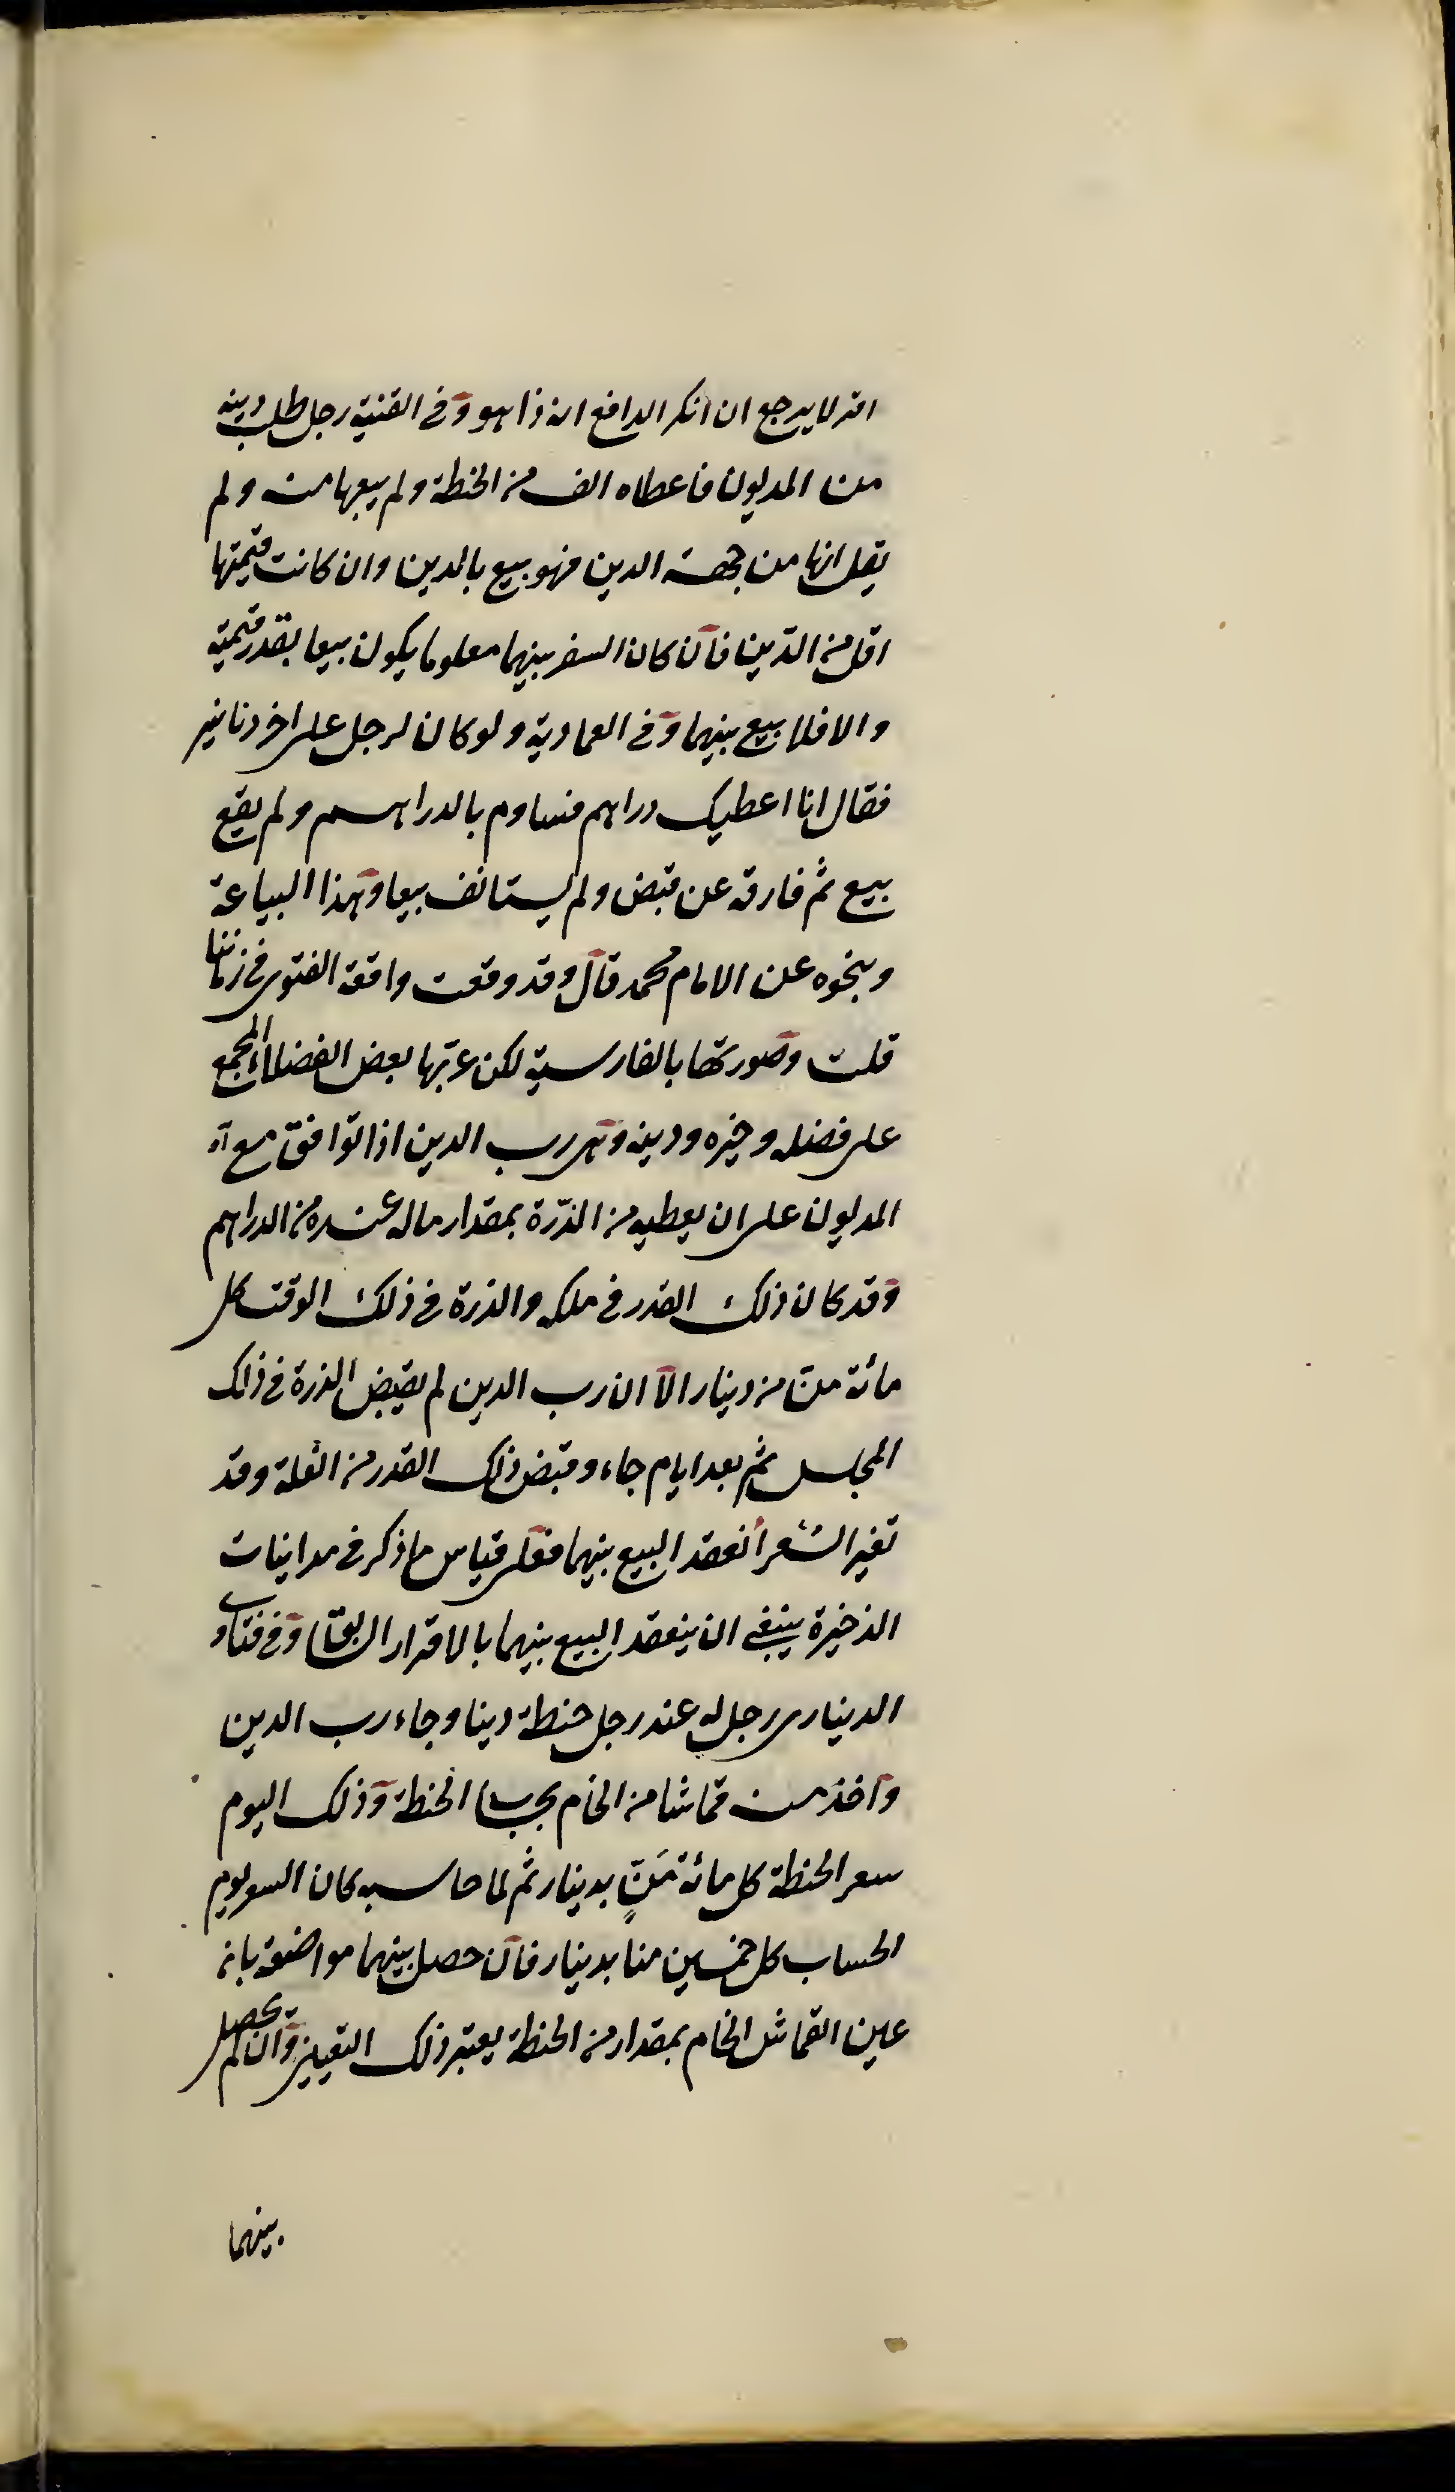 انه لا يرجع ان انكر الدافع انه ذا هو وفى القنية رجل طلب دينه
من المديون فاعطاه الف من الحنطة ولم يبعها منه ولم
يقل انها من جهة الدين فهو بيع بالدين وان كانت قيمتها
اقل من الدّين فان كان السعر بينهما معلوما يكون بيعا بقدر قيمته
والا فلا بيع بينهما وفى العمادية ولو كان لرجل على اخر دنانير
فقال انا اعطيك دراهم فساوم بالدراهم ولم يقع
بيع ثم فارقه عن قبض ولم يستانف بيعا وهذا البياعة
وبنحوه عن الامام محمد قال وقد وقعت واقعة الفتوى فى زماننا
قلت وصورتها بالفارسية لكن عرّبها بعض الفضلاء المجمع
على فضله وخيره ودينه وهى رب الدين اذا توافق مع
المديون على ان يعطيه من الذّرة بمقدار ماله عنده من الدراهم
وقد كان ذلك القدر فى ملكه والذرة فى ذلك الوقت كل
مائة منّ من دينار الا ان رب الدين لم يقبض الذرة فى ذلك
المجلس ثم بعد ايام جاء وقبض ذلك القدر من الغلة وقد
تغير السعر أنعقد البيع بينهما فعلى قياس ما ذكر فى مداينات
الذخيرة ينبغى ان ينعقد البيع بينهما بالاقرار السابق وفى فتاوى
الدينارى رجل له عند رجل حنطة دينا وجاء رب الدين
واخذ منه قماشا من الخام بحساب الحنطة وذلك اليوم
سعر الحنطة كل مائة مَنٍّ بدينار ثم لما حاسبه كان السعر يوم
الحساب كل خمسين منا بدينار فان حصل بينهما مواضعة بانه
عين القماش الخام بمقدار من الحنطة يعتبر ذلك التعيين وان لم يحصل
بينهما